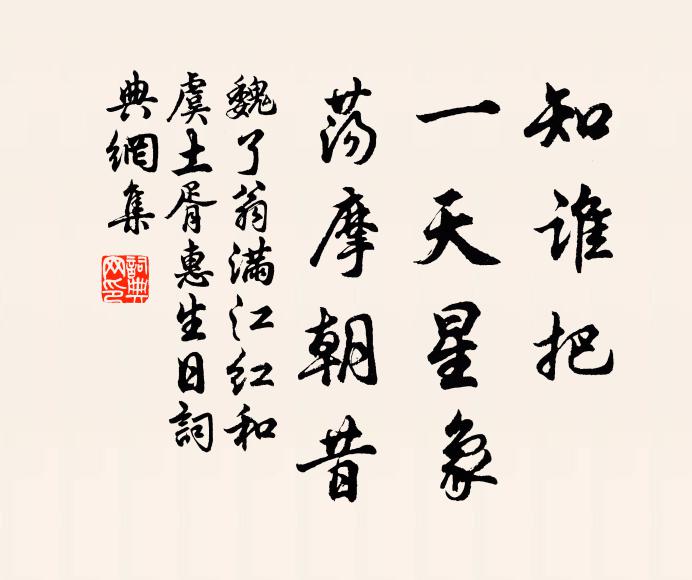 知谁把
一天星象
荡摩朝昔
魏了翁满江红和
虞士胥惠生日詞
典網集
詞典
网印